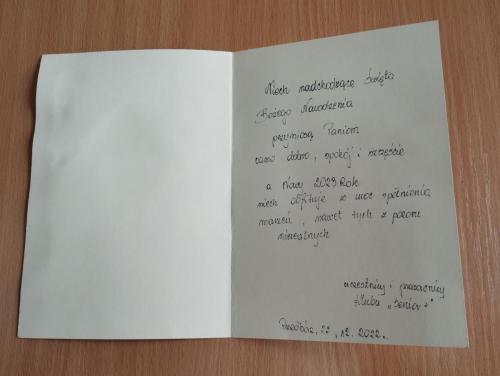 Niech nadchodzące Święta
Bożego Narodzenia
przyniosą Paniom
samo dobro, spokój i szczęście
a Nowy 2023 Rok
niech obfituje w moc spełnienia
marzeń, nawet tych z pozoru
nierealnych
uczestnicy i pracownicy
Klubu „Senior +"
Przedbórz, 22.12.2022r.